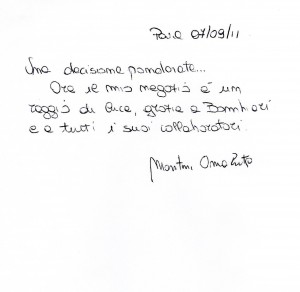 07/09/11
Una decisione ponderata...
Ora il mio negozio è un
raggio di luce, grazie a Bambieri
e a tutti i suoi collaboratori.